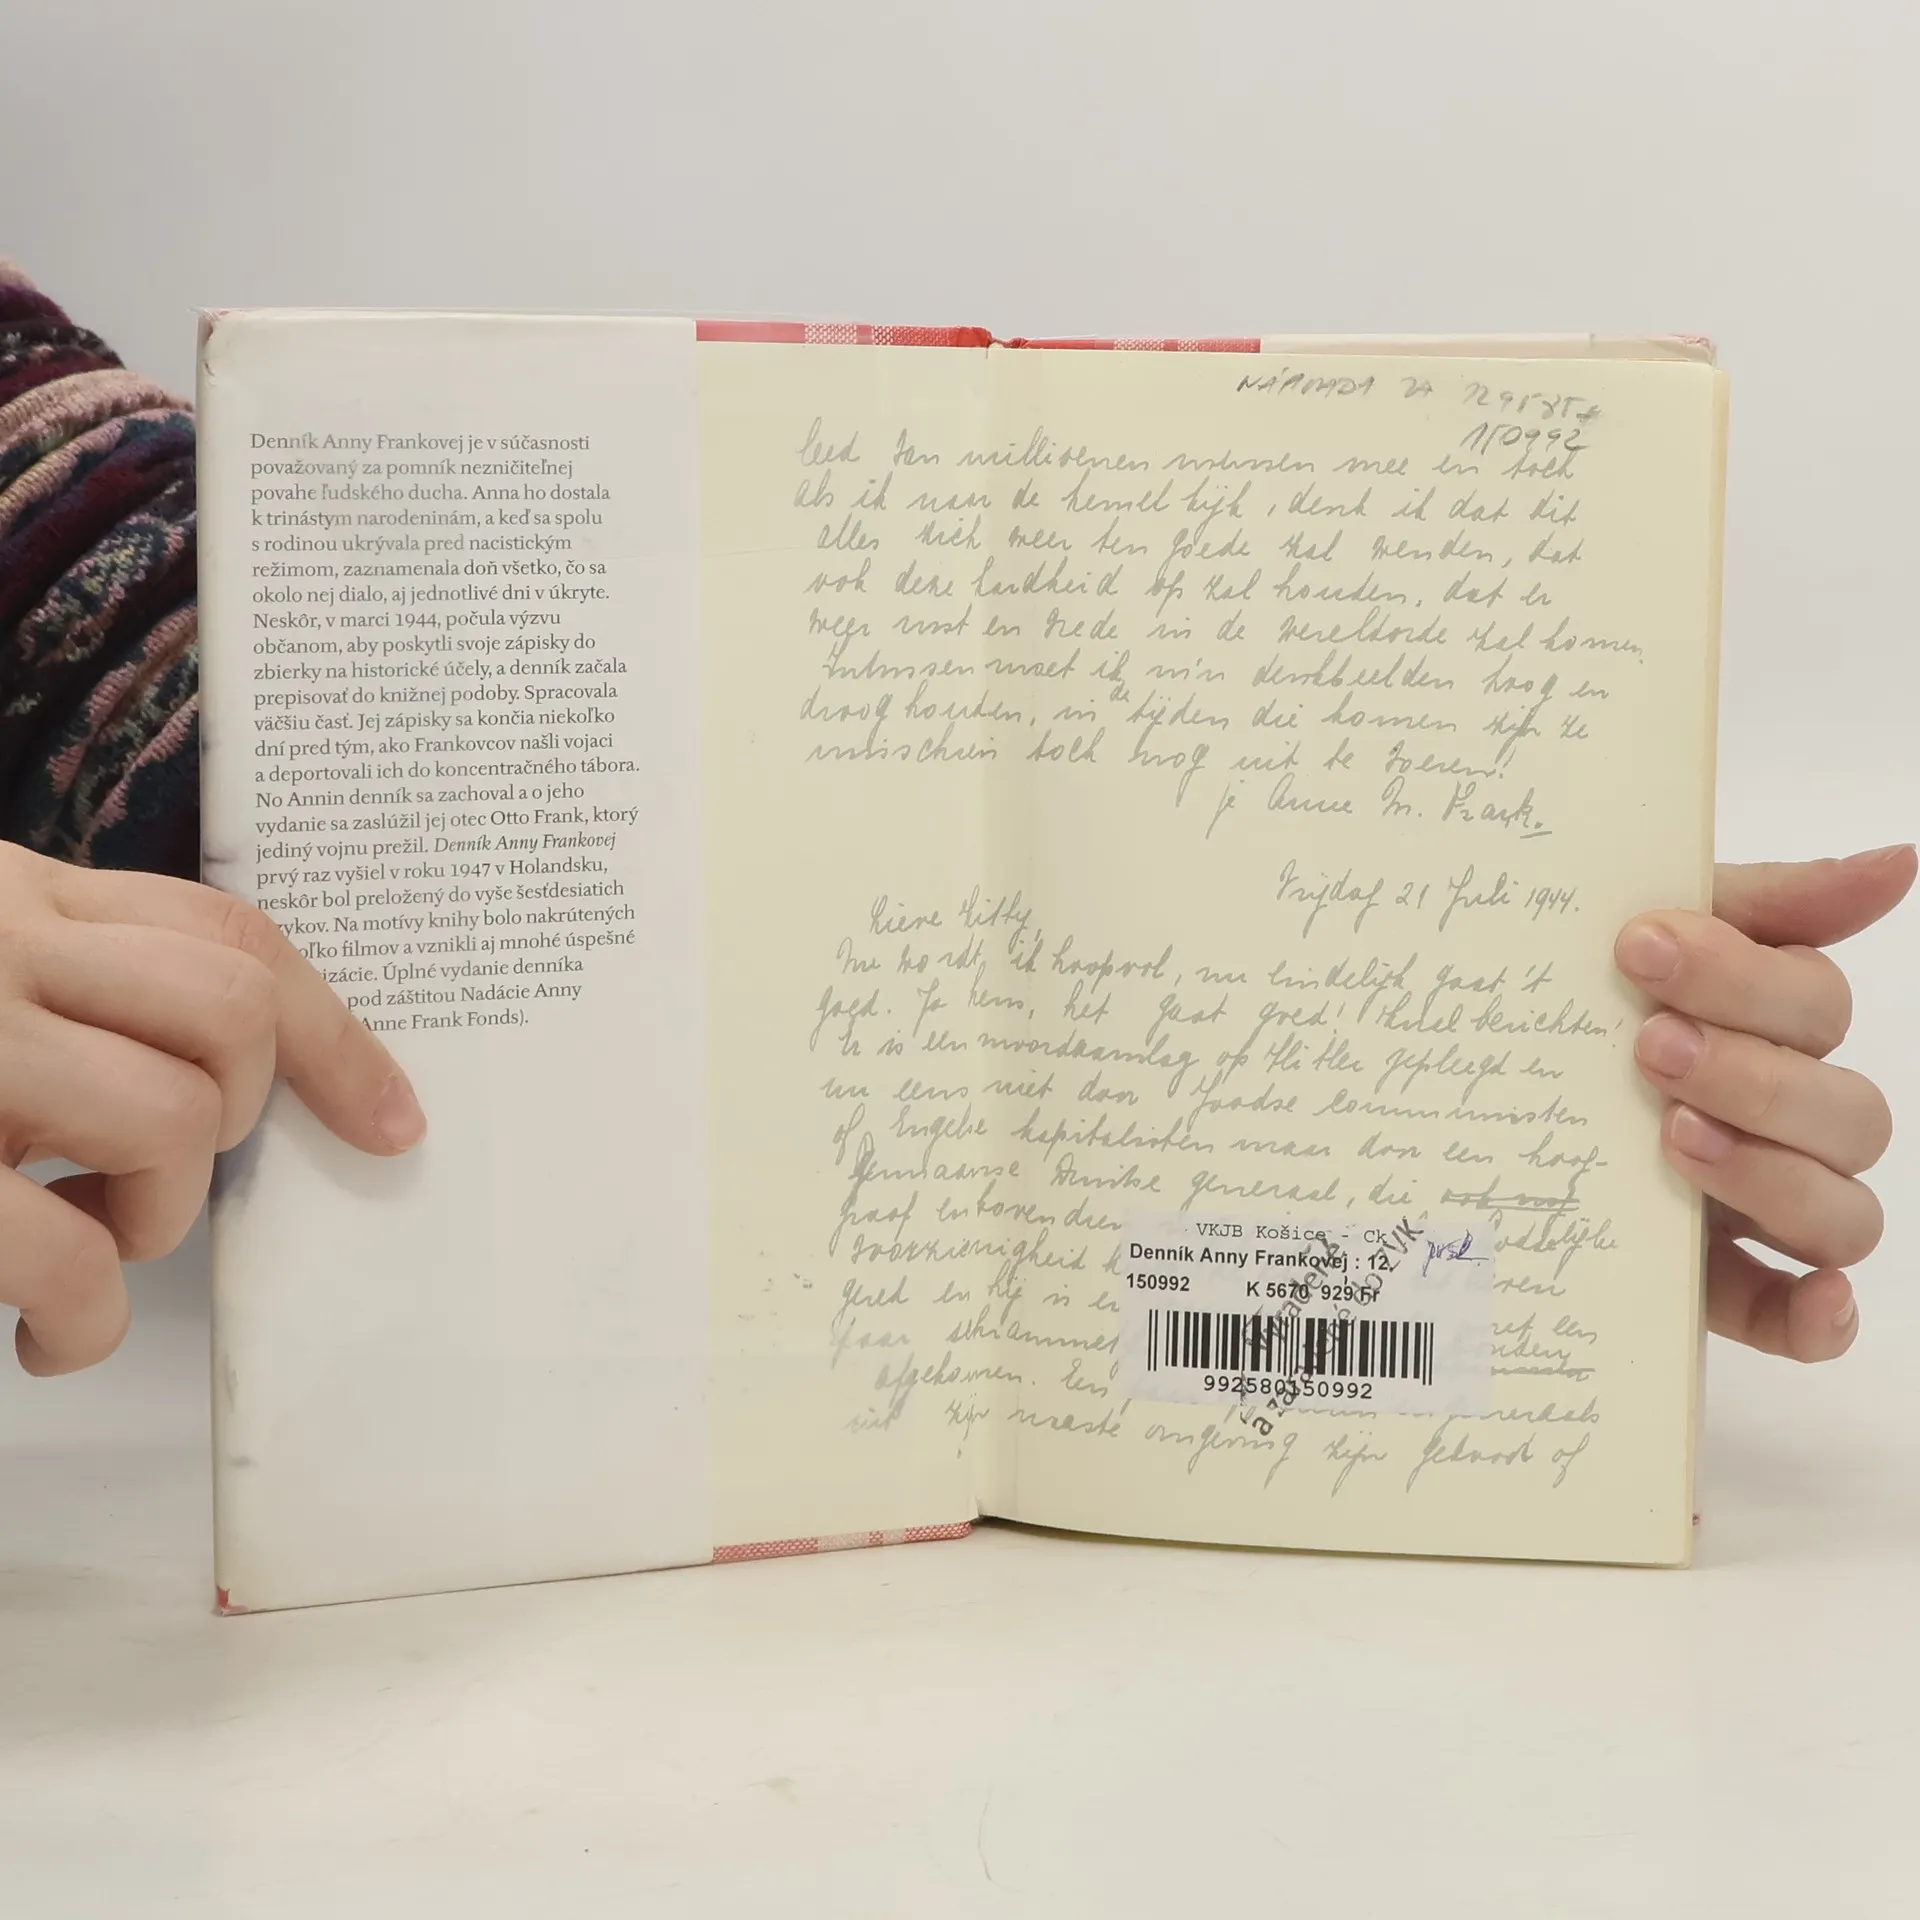 Denník Anny Frankovej je v súčasnosti
považovaný za pomník nezničiteľnej
povahe ľudského ducha. Anna ho dostala
k trinástym narodeninám, a keď sa spolu
s rodinou ukrývala pred nacistickým
režimom, zaznamenala doň všetko, čo sa
okolo nej dialo, aj jednotlivé dni v úkryte.
Neskôr, v marci 1944, počula výzvu
občanom, aby poskytli svoje zápisky do
zbierky na historické účely, a denník začala
prepisovať do knižnej podoby. Spracovala
väčšiu časť. Jej zápisky sa končia niekoľko
dní pred tým, ako Frankovcov našli vojaci
a deportovali ich do koncentračného tábora.
No Annin denník sa zachoval a o jeho
vydanie sa zaslúžil jej otec Otto Frank, ktorý
jediný vojnu prežil. Denník Anny Frankovej
prvý raz vyšiel v roku 1947 v Holandsku,
neskôr bol preložený do vyše šesťdesiatich
zykov. Na motívy knihy bolo nakrútených
oľko filmov a vznikli aj mnohé úspešné
izácie. Úplné vydanie denníka
pod záštitou Nadácie Anny
Anne Frank Fonds).
NÁHRADA ZA
150992
leed van millioenen mensen mee en toch
als ik naar de hemel kijk, denk ik dat dit
alles zich weer ten goede zal wenden, dat
ook deze hardheid op zal houden, dat er
weer rust en vrede in de wereldorde zal komen.
Intussen moet ik m'n denkbeelden hoog en
droog houden, in de tijden die komen zijn ze
misschien toch nog uit te voeren!
je Anne M. Frank.
Vrijdag 21 Juli 1944.
Lieve Kitty,
Nu word ik hoopvol, nu eindelijk gaat 't
goed. Ja heus, het gaat goed! Knal berichten!
Er is een moordaanslag op Hitler gepleegd en
nu eens niet door Joodse communisten
of Engelse kapitalisten maar door een hoog-
germaanse Duitse generaal, die
graaf en bovendien
voorzienigheid
gered en hij is er
paar schrammen
afgekomen. Een
uit zijn naaste omgeving zijn gedood of
VKJB Košice - Ck
Denník Anny Frankovej : 12.
150992 K 5670 929 Fr
992580150992
Vyradené